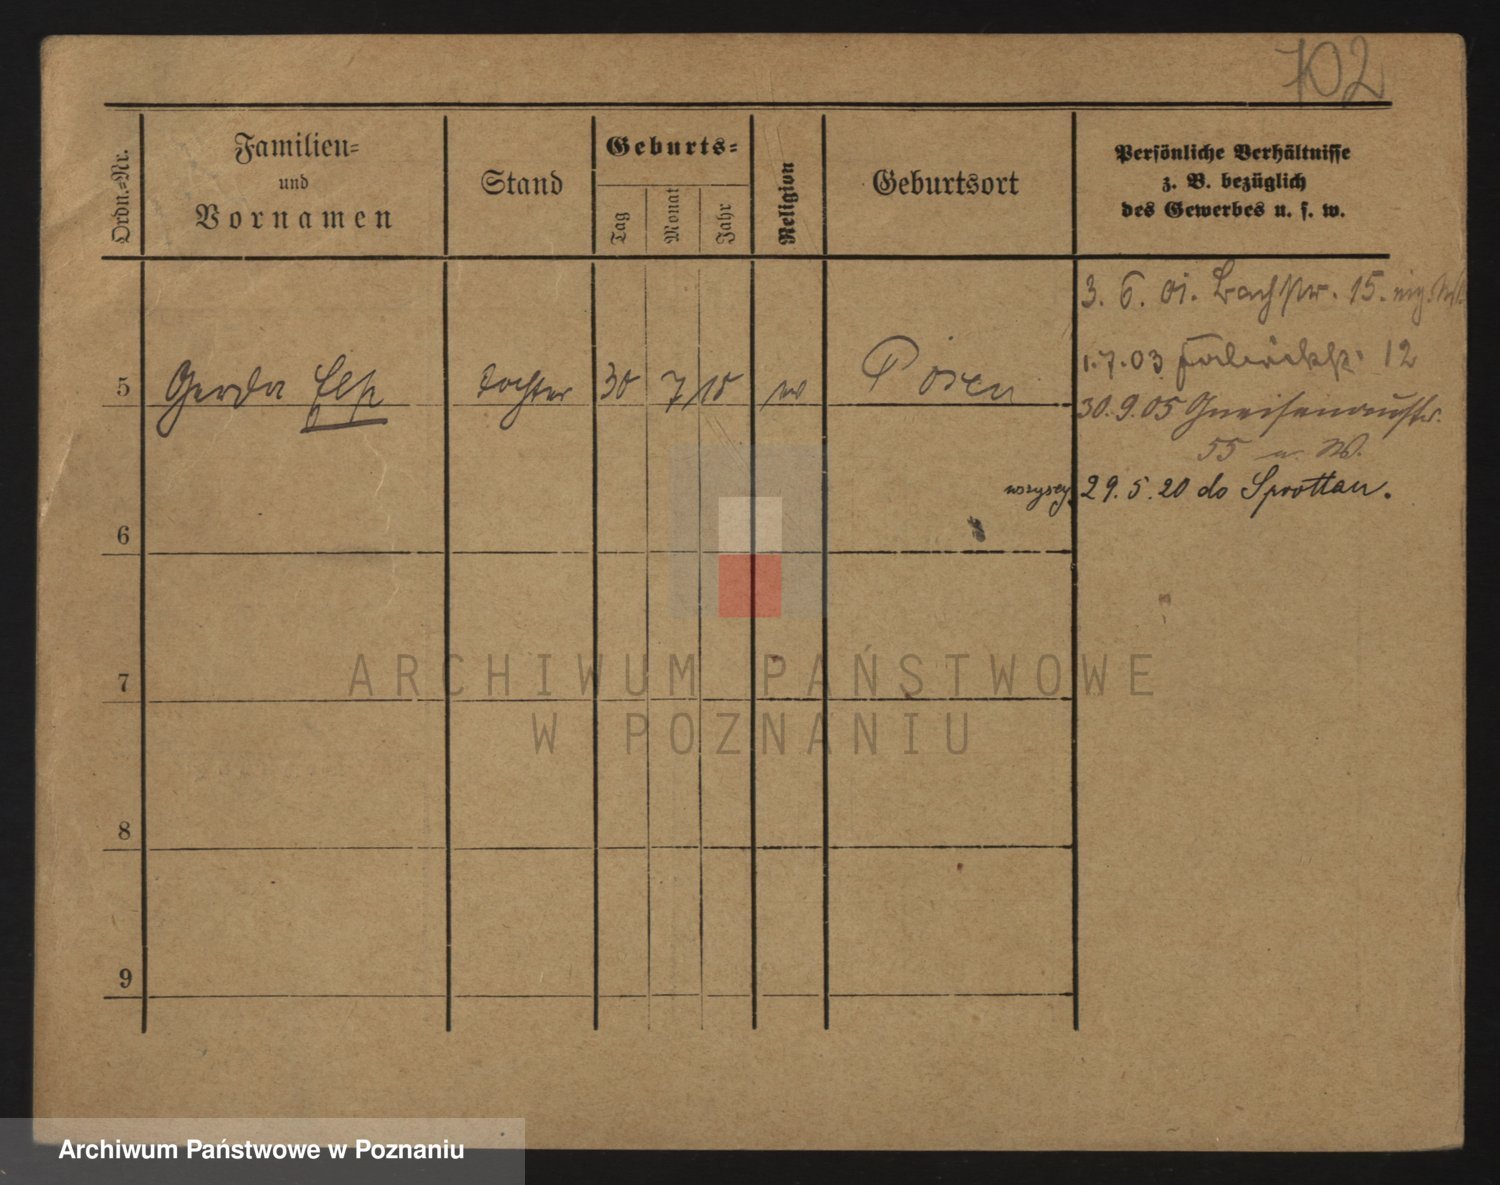 102
Ordn.-Nr.
Familien-
und
Vornamen
Stand
Geburts-
Tag
Monat
Jahr
Religion
Geburtsort
Persönliche Verhältnisse
z. B. bezüglich
des Gewerbes u. s. w.
3. 6. 01. Bachstr. 15.
1.7.03 12
5 Gerda Else Tochter 30 7 10 Posen
30.9.05 Gneisenaustr.
55
wszyscy 29.5.20 do Sprottau.
6
7
8
9
ARCHIWUM PAŃSTWOWE
W POZNANIU
Archiwum Państwowe w Poznaniu